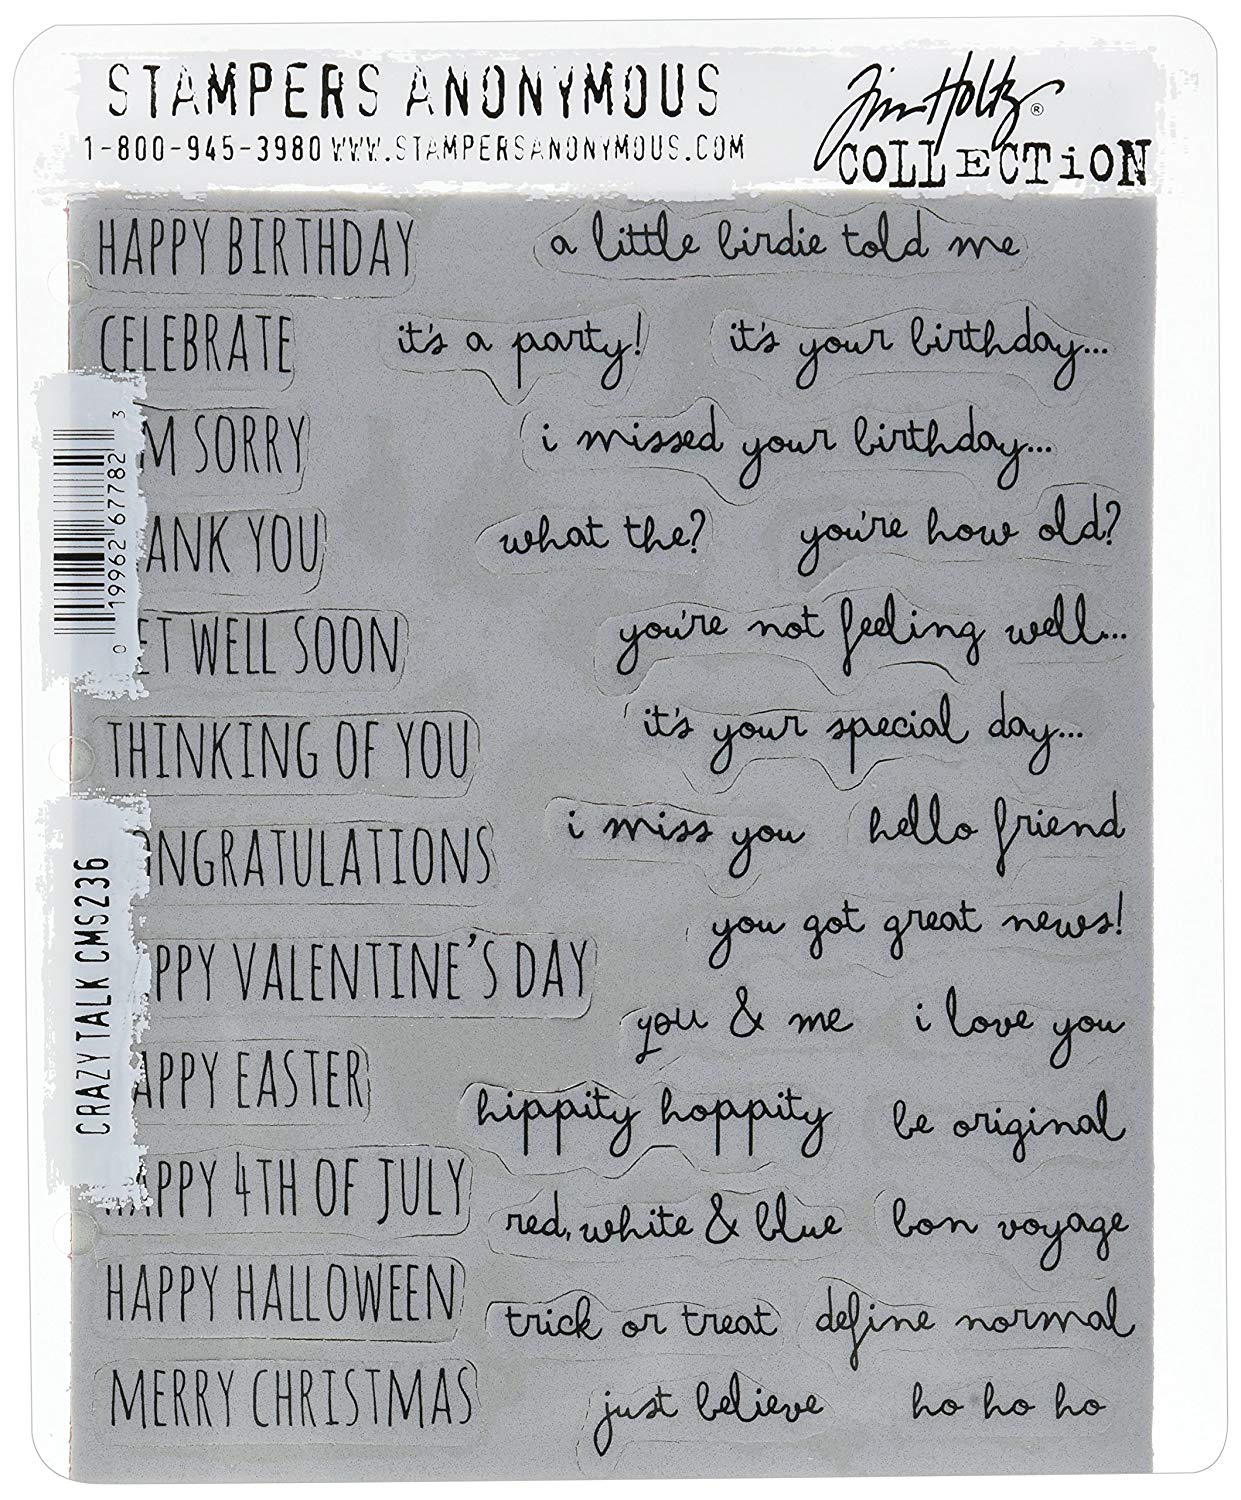 STAMPERS ANONYMOUS
1-800-945-3980 WWW.STAMPERSANONYMOUS.COM
Tim Holtz®
COLLECTION
HAPPY BIRTHDAY
a little birdie told me
CELEBRATE
it's a party!
it's your birthday...
M SORRY
i missed your birthday...
ANK YOU
what the?
you're how old?
ET WELL SOON
you're not feeling well...
THINKING OF YOU
it's your special day...
ONGRATULATIONS
i miss you
hello friend
you got great news!
PPY VALENTINE'S DAY
you & me
i love you
APPY EASTER
hippity hoppity
be original
APPY 4TH OF JULY
red, white & blue
bon voyage
HAPPY HALLOWEEN
trick or treat
define normal
MERRY CHRISTMAS
just believe
ho ho ho
0 19962 67782 3
CRAZY TALK CMS236